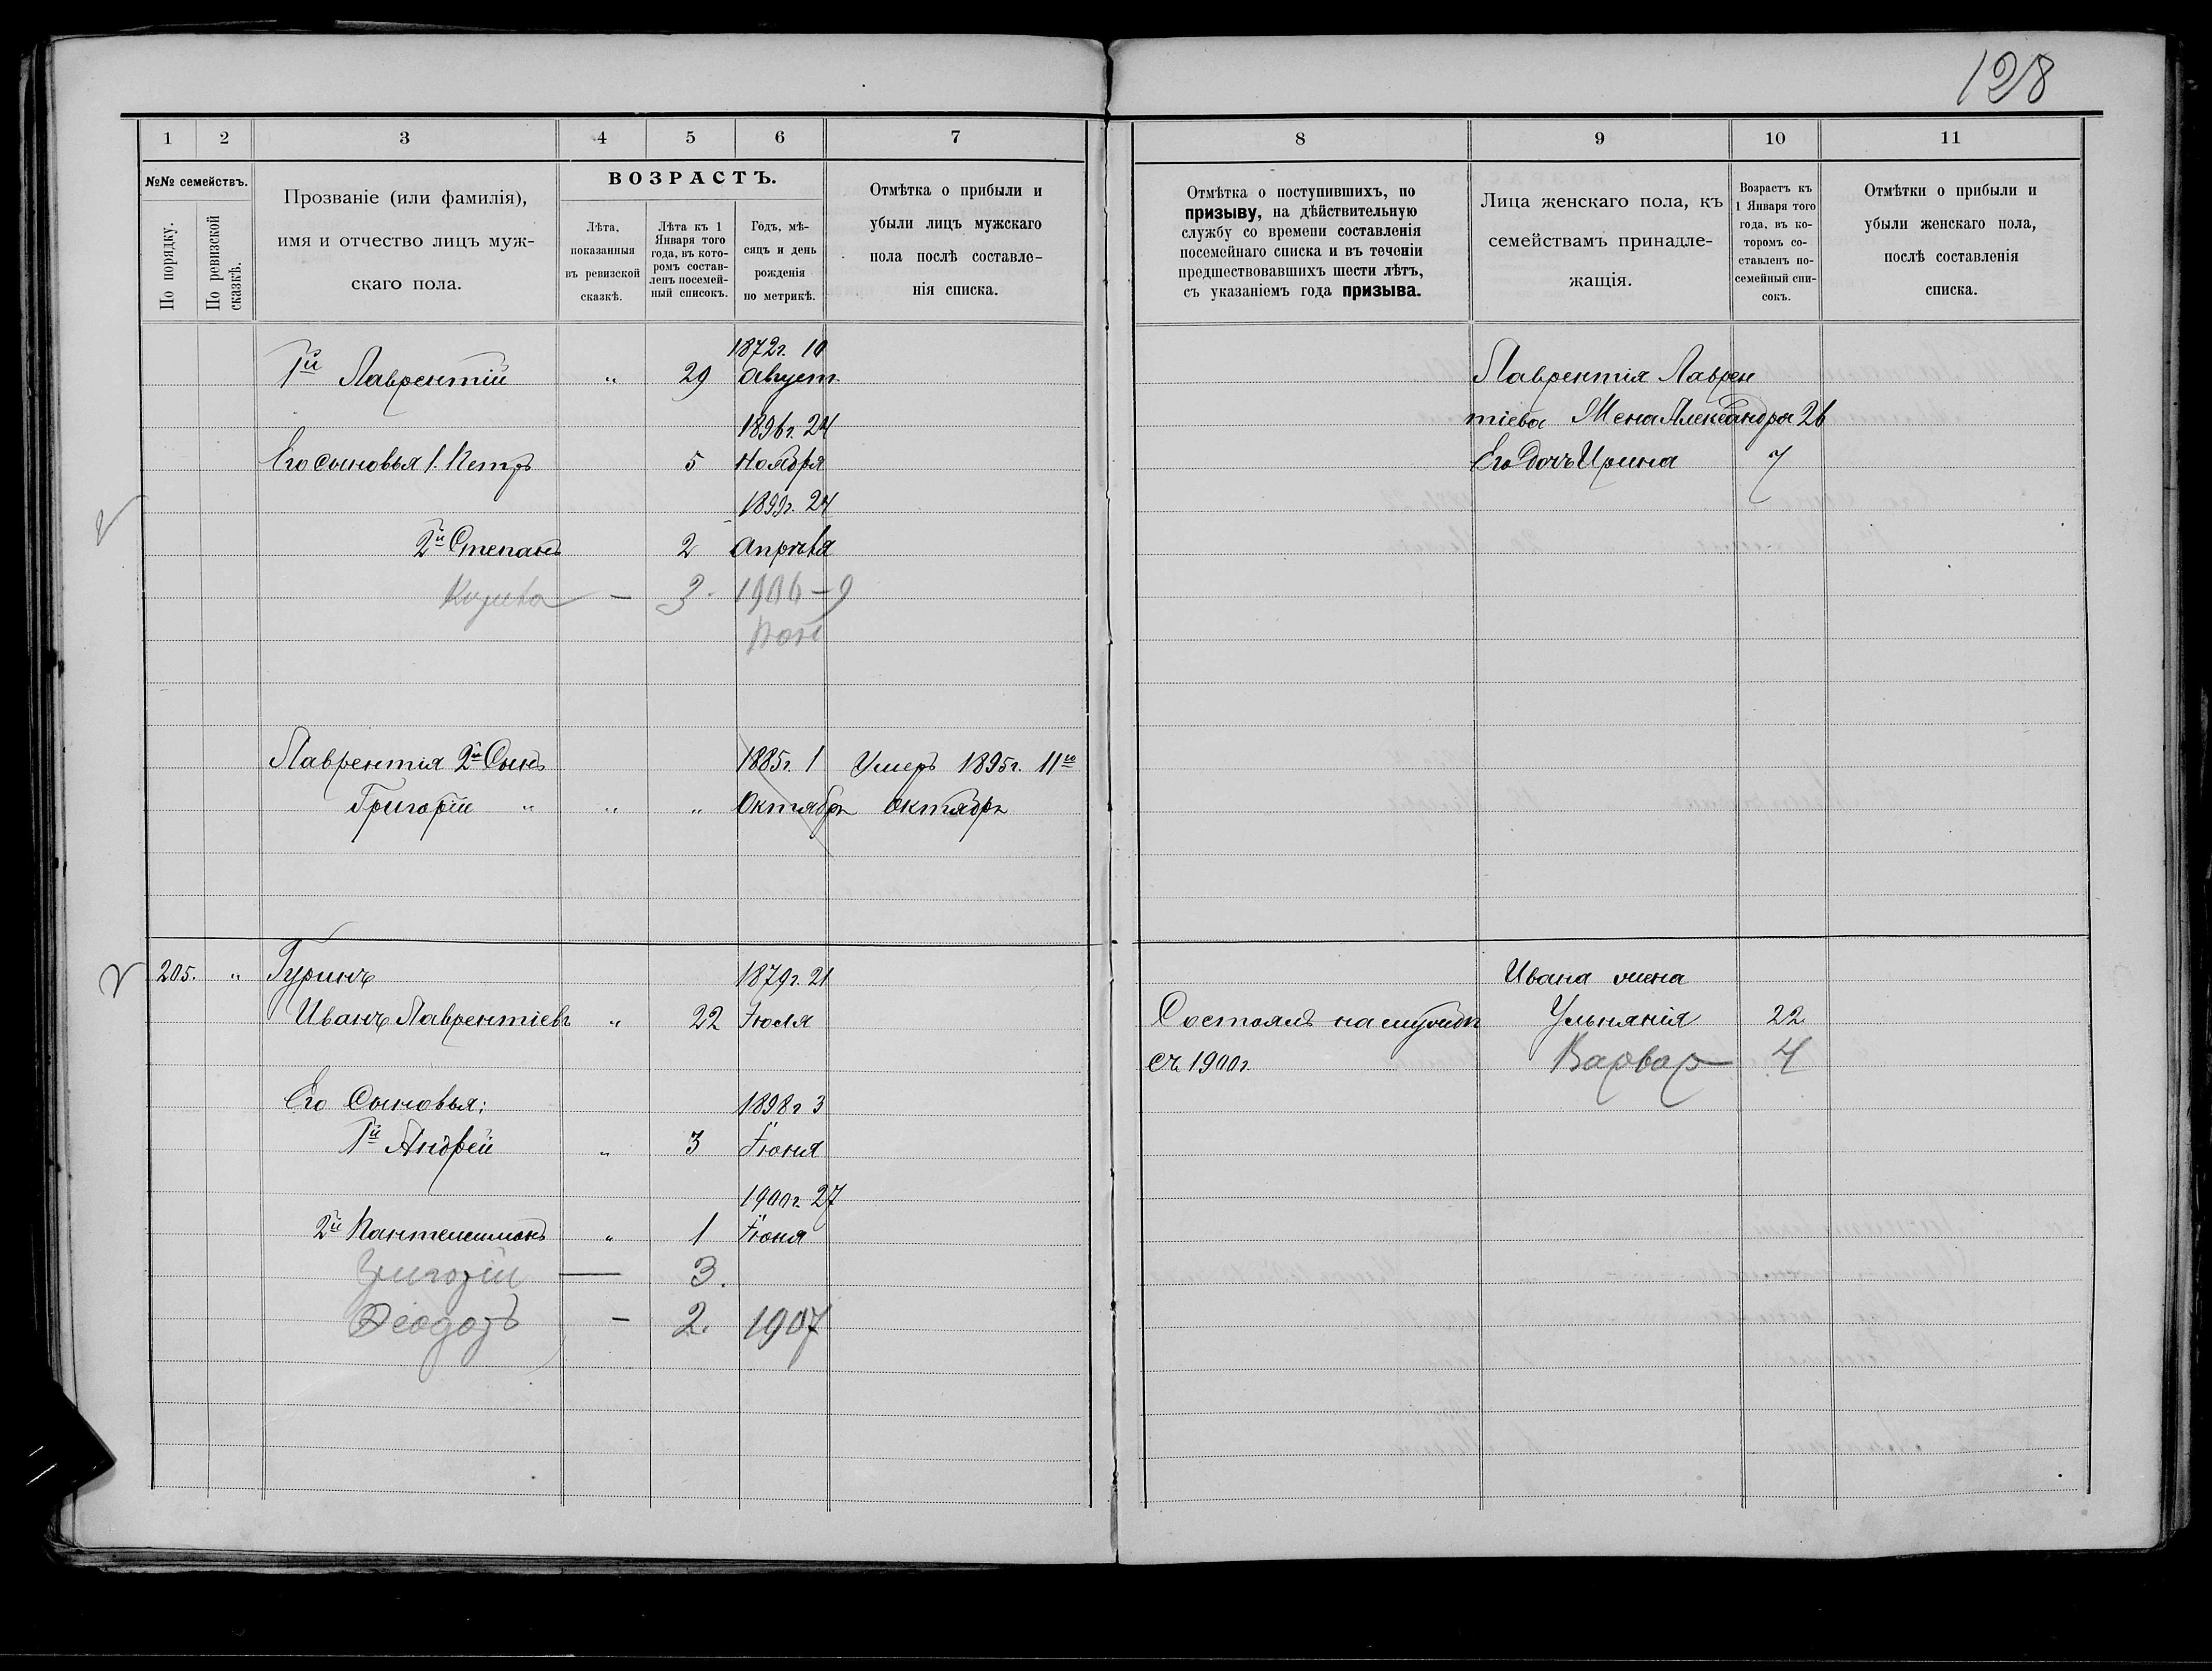 128
1 2 3 4 5 6 7
№№ семействъ.
По порядку.
По ревизской сказкѣ.
Прозваніе (или фамилія),
имя и отчество лицъ муж-
скаго пола.
ВОЗРАСТЪ.
Лѣта,
показанныя
въ ревизской
сказкѣ.
Лѣта къ 1
Января того
года, въ кото-
ромъ состав-
ленъ посемей-
ный списокъ.
Годъ, мѣ-
сяцъ и день
рожденія
по метрикѣ.
Отмѣтка о прибыли и
убыли лицъ мужскаго
пола послѣ составле-
нія списка.
1872г. 10
1й Лаврентій „ 29 Август.
1896г. 24
Его сыновья 1. Петръ 5 Ноября
1899г. 24
2й Степанъ 2 Апрѣля
— 3. 1906-9
Лаврентія 2й Сынъ 1885г. 1 Умеръ 1895г. 11го
Григорій „ „ „ Октябрь Октября
205. „ Гуринъ 1879г. 21
Иванъ Лаврентіевъ „ 22 Іюля
Его Сыновья: 1898г 3
1й Андрей „ 3 Іюня
1900г. 27
2й Пантелеимонъ „ 1 Іюня
Григорій — 3.
Ѳеодоръ — 2. 1907
8 9 10 11
Отмѣтка о поступившихъ, по
призыву, на дѣйствительную
службу со времени составленія
посемейнаго списка и въ теченіи
предшествовавшихъ шести лѣтъ,
съ указаніемъ года призыва.
Лица женскаго пола, къ
семействамъ принадле-
жащія.
Возрастъ къ
1 Января того
года, въ ко-
торомъ со-
ставленъ по-
семейный спи-
сокъ.
Отмѣтки о прибыли и
убыли женскаго пола,
послѣ составленія
списка.
Лаврентія Лаврен
тіева Жена Александра 26
Его Дочь Ирина 7
Ивана жена
Состоялъ на службѣ Ульянія 22
съ 1900г. Варвар 4